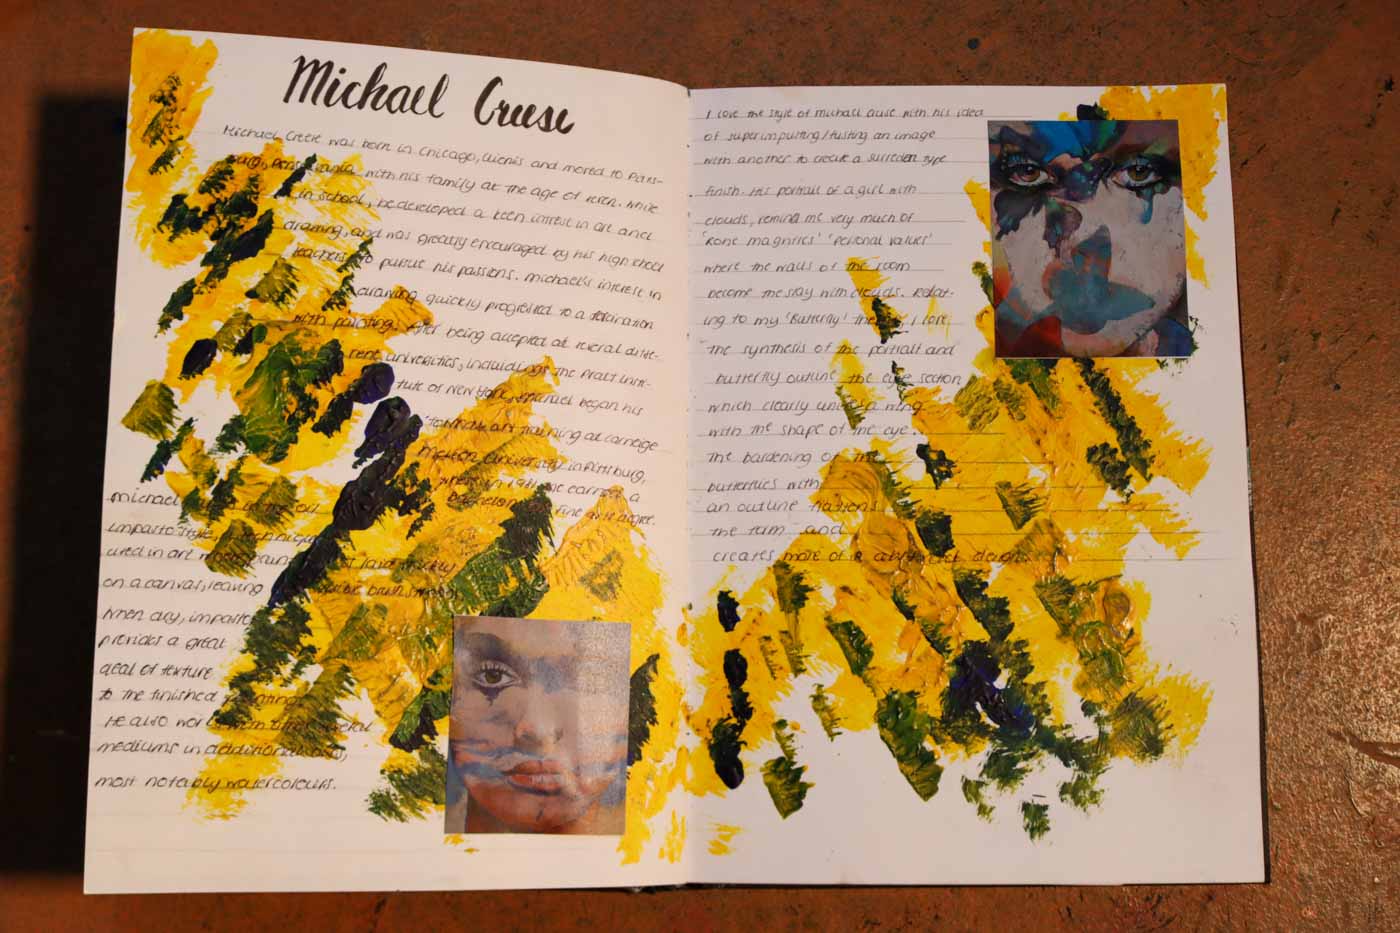 Michael Creese
Michael Creese was born in Chicago, Illinois and moved to Pitts-
burg, Pennsylvania with his family at the age of seven. While
in school, he developed a keen intrest in art and
drawing, and was greatly encouraged by his high school
teachers to pursue his passions. Michael's interest in
drawing quickly progressed to a fascination
with painting. After being accepted at several diffe-
rent universities, including the Pratt Insti-
tute of New York, Michael began his
formal art training at Carnegie
Mellon University in Pittsburg,
where in 1981 he earned a
bachelor fine arts degree.
Michael in the oil
impasto style, technique
used in art laid thickly
on a canvas, leaving brush strokes
When dry, impasto
provides a great
deal of texture
to the finished painting.
He also works several
mediums in additional oils,
most notably watercolours.
I love the style of Michael Cruse with his idea
of superimpusting/fusting an image
with another to create a surreden type
finish. His portrait of a girl with
clouds, remind me very much of
'Rone magrittes' 'Personal values'
where the walls of the room
become the skay with clouds. Relat-
ing to my 'Butterfly' theme, I love
the synthesis of the portrait and
butterfly outline the eye section
which clearly a wing
with the shape of the eye.
The bardening of the
butterflies with
an outline
the form and
creates more of a design.